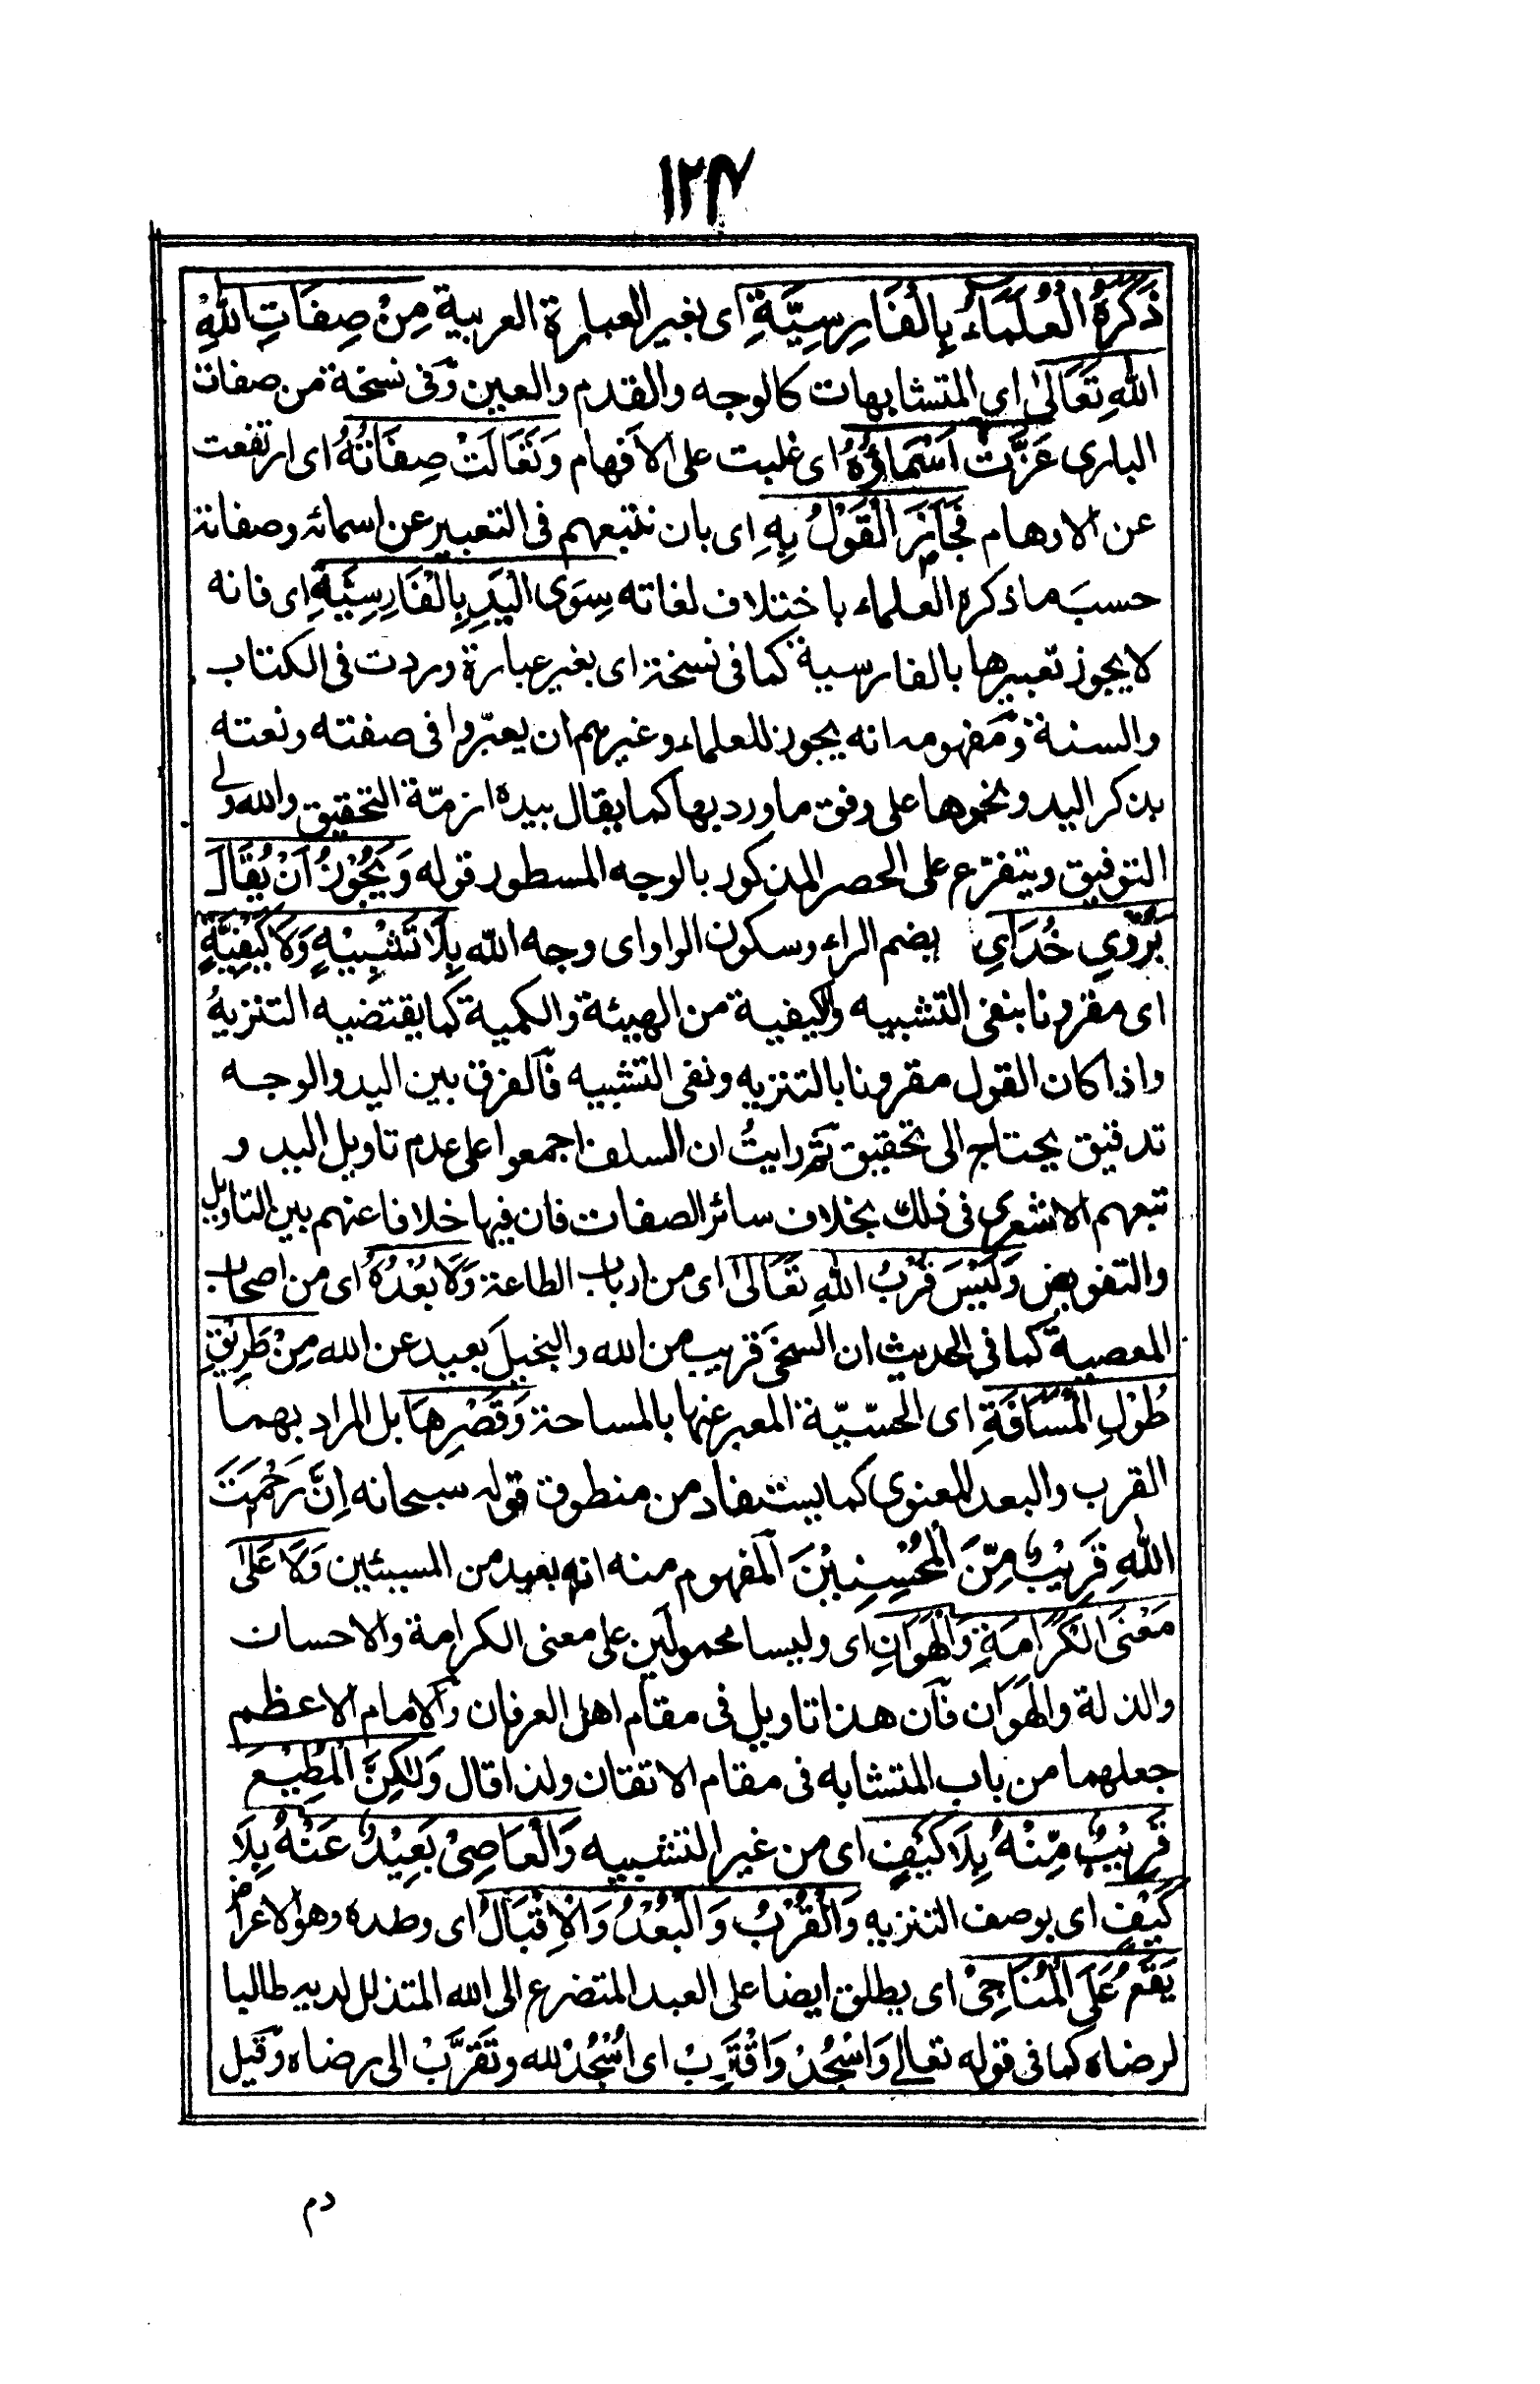 ١٢٤
ذَكَرَهُ الْعُلَمَاءُ بِالْفَارِسِيَّةِ اى بغير العبارة العربية مِنْ صِفَاتِ اللّٰهِ
اللّٰهِ تَعَالٰى اى المتشابهات كالوجه والقدم والعين وفى نسخة من صفات
البارى عَزَّتْ اَسْمَاؤُهُ اى غلبت على الافهام وَتَعَالَتْ صِفَاتُهُ اى ارتفعت
عن الاوهام فَجَائِزٌ الْقَوْلُ بِهِ اى بان نتبعهم فى التعبير عن اسمائه وصفاته
حسبَ ما ذكره العلماء باختلاف لغاته سِوَى الْيَدِ بِالْفَارِسِيَّةِ اى فانه
لا يجوز تعبيرها بالفارسية كما فى نسخة اى بغير عبارة وردت فى الكتاب
والسنة ومفهومه انه يجوز للعلماء وغيرهم ان يعبّروا فى صفته ونعته
بذكر اليد ونحوها على وفق ما ورد بها كما يقال بيده ازمّة التحقيق والله ولى
التوفيق ويتفرّع على الحصر المذكور بالوجه المسطور قوله وَيَجُوْزُ اَنْ يُقَالَ
بَرُوْىِ خُدَاىِ بضم الراء وسكون الواو اى وجه الله بِلَا تَشْبِيْهٍ وَلَا كَيْفِيَّةٍ
اى مقرونا بنفى التشبيه والكيفية من الهيئة والكمية كما يقتضيه التنزيهُ
واذا كان القول مقرونا بالتنزيه ونفى التشبيه فالفرق بين اليد والوجه
تدقيق يحتاج الى تحقيق ثم رايتُ ان السلف اجمعوا على عدم تاويل اليد و
تبعهم الاشعرى فى ذلك بخلاف سائر الصفات فان فيها خلافا عنهم بين التاويل
والتفويض وَلَيْسَ قُرْبُ اللّٰهِ تَعَالٰى اى من ارباب الطاعة وَلَا بُعْدُهُ اى من اصحاب
المعصية كما فى الحديث ان السخى قريب من الله والبخيل بعيد عن الله مِنْ طَرِيْقِ
طُوْلِ الْمَسَافَةِ اى الحسّيّة المعبر عنها بالمساحة وَقَصْرِهَا بل المراد بهما
القرب والبعد المعنوى كما يستفاد من منطوق قوله سبحانه اِنَّ رَحْمَتَ
اللّٰهِ قَرِيْبٌ مِّنَ الْمُحْسِنِيْنَ المفهوم منه انه بعيد من المسيئين وَلَا عَلٰى
مَعْنَى الْكَرَامَةِ وَالْهَوَانِ اى وليسا محمولين على معنى الكرامة والاحسان
والذلة والهوان فان هذا تاويل فى مقام اهل العرفان والامام الاعظم
جعلهما من باب المتشابه فى مقام الاتقان ولذا قال وَلٰكِنَّ الْمُطِيْعَ
قَرِيْبٌ مِّنْهُ بِلَا كَيْفٍ اى من غير التشبيه وَالْعَاصِىْ بَعِيْدٌ عَنْهُ بِلَا
كَيْفٍ اى بوصف التنزيه وَالْقُرْبُ وَالْبُعْدُ وَالْاِقْبَالُ اى وضده وهو الاعراض
يَقَعُ عَلَى الْمُنَاجِىْ اى يطلق ايضا على العبد المتضرع الى الله المتذلل لديه طالبا
لرضاه كما فى قوله تعالى وَاسْجُدْ وَاقْتَرِبْ اى اُسْجُدْ لله وتَقَرَّبْ الى رضاه وقيل
دم